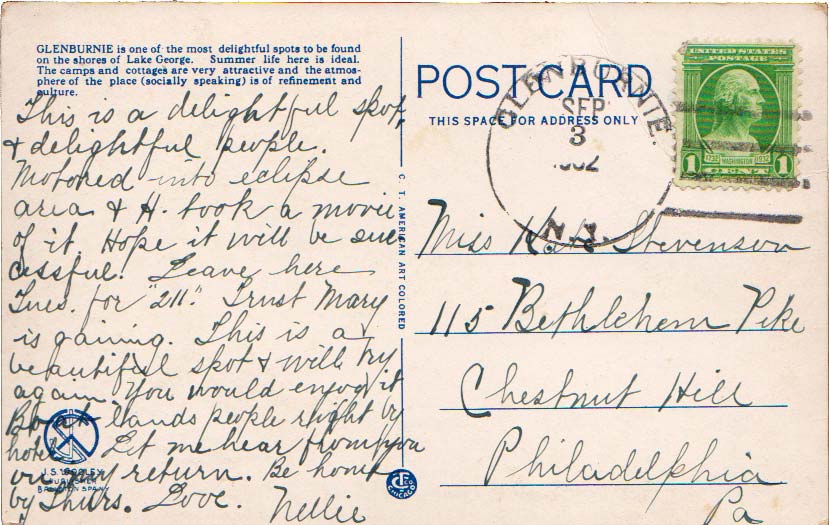 GLENBURNIE is one of the most delightful spots to be found
on the shores of Lake George. Summer life here is ideal.
The camps and cottages are very attractive and the atmos-
phere of the place (socially speaking) is of refinement and
culture.
This is a delightful spot,
& delightful people.
Motored into eclipse
area & H. took a movie
of it. Hope it will be suc
cessful. Leave here
Tues. for "211". Trust Mary
is gaining. This is a
beautiful spot & will try
again. You would enjoy it
Boat lands people right by
hotel. Let me hear from you
on my return. Be home
by Thurs. Love.
Nellie
PUBLISHER
C. T. AMERICAN ART COLORED
CHICAGO
POST CARD
THIS SPACE FOR ADDRESS ONLY
GLENBURNIE
SEP
3
1932
N.Y.
UNITED STATES
POSTAGE
1 1732 WASHINGTON 1932 1
CENT
Miss Stevenson
115 Bethlehem Pike
Chestnut Hill
Philadelphia
Pa